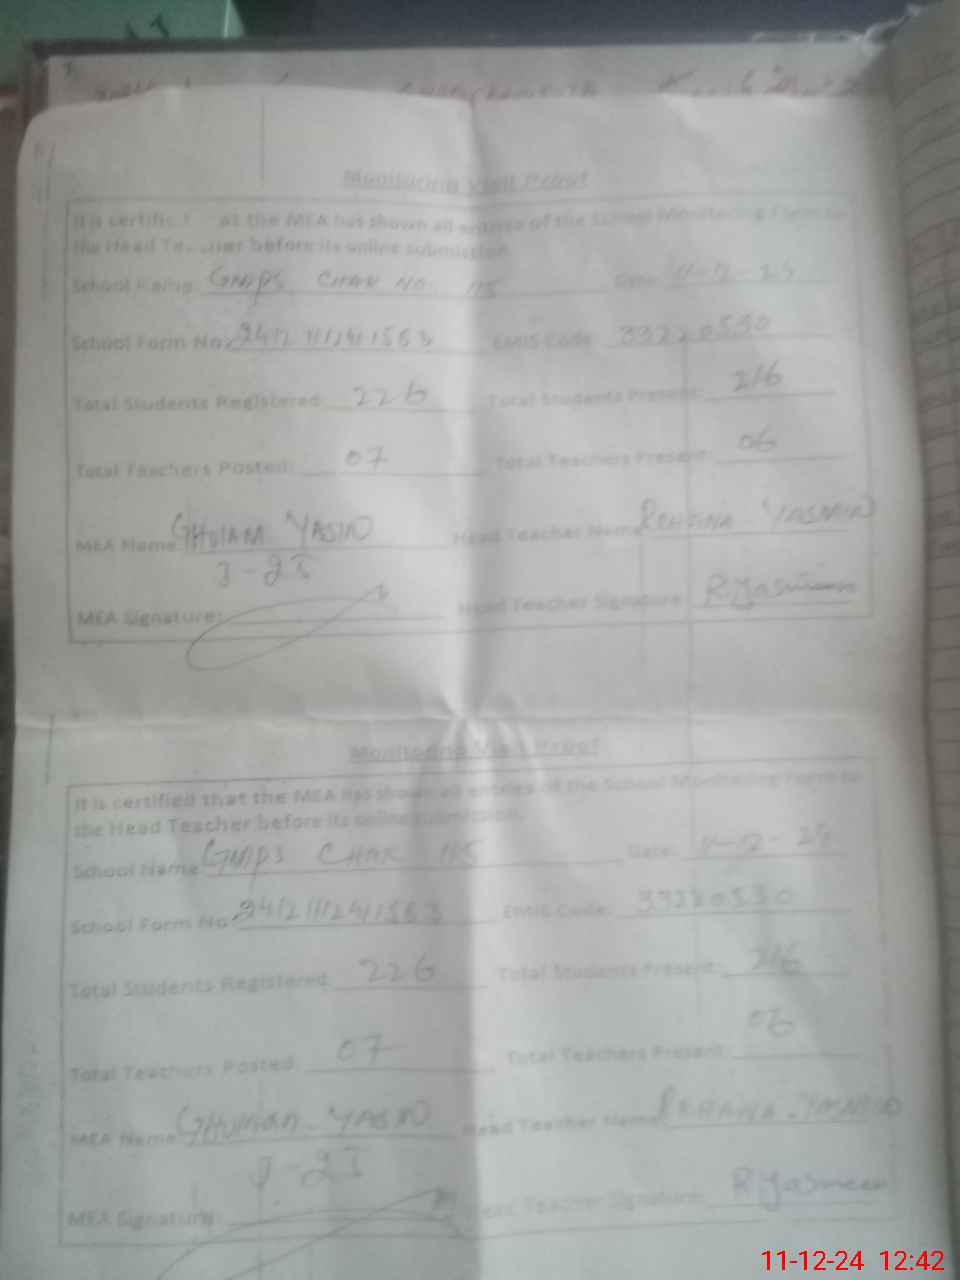 Monitoring Visit Proof
It is certified as the MEA has shown all entries of the School Monitoring Form to
the Head Teacher before its online submission.
School Name: GMPS CHAK NO. 115 Date: 11-12-24
School Form No: 2412111241563 EMIS Code: 33220530
Total Students Registered: 226 Total Students Present: 216
Total Teachers Posted: 07 Total Teachers Present: 06
MEA Name: GHULAM YASIN Head Teacher Name: REHANA YASMIN
MEA Signature: Head Teacher Signature: R.Yasmeen
Monitoring Visit Proof
It is certified that the MEA has shown all entries of the School Monitoring Form to
the Head Teacher before its online submission.
School Name: GMPS CHAK 115 Date: 11-12-24
School Form No: 2412111241563 EMIS Code: 33220530
Total Students Registered: 226 Total Students Present: 216
Total Teachers Posted: 07 Total Teachers Present: 06
MEA Name: GHULAM YASIN Head Teacher Name: REHANA YASMIN
MEA Signature: Head Teacher Signature: R.Yasmeen
11-12-24 12:42